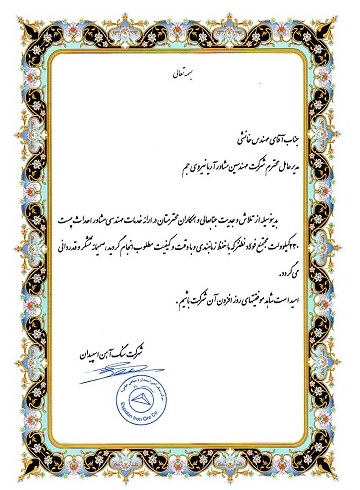 بسمه تعالی
جناب آقای مهندس خانشی
مدیرعامل محترم شرکت مهندسین مشاور آریا نیروی جم
بدینوسیله از تلاش و جدیت جنابعالی و همکاران محترمتان در ارائه خدمات مهندسی مشاور احداث پست
۲۳۰ کیلوولت مجتمع فولاد نطنز که با حفظ زمانبندی و با دقت و کیفیت مطلوب انجام گردید، صمیمانه تشکر و قدردانی
می گردد.
امید است شاهد موفقیتهای روز افزون آن شرکت باشیم .
شرکت سنگ آهن اسپیدان
Espidan Iron Ore Co